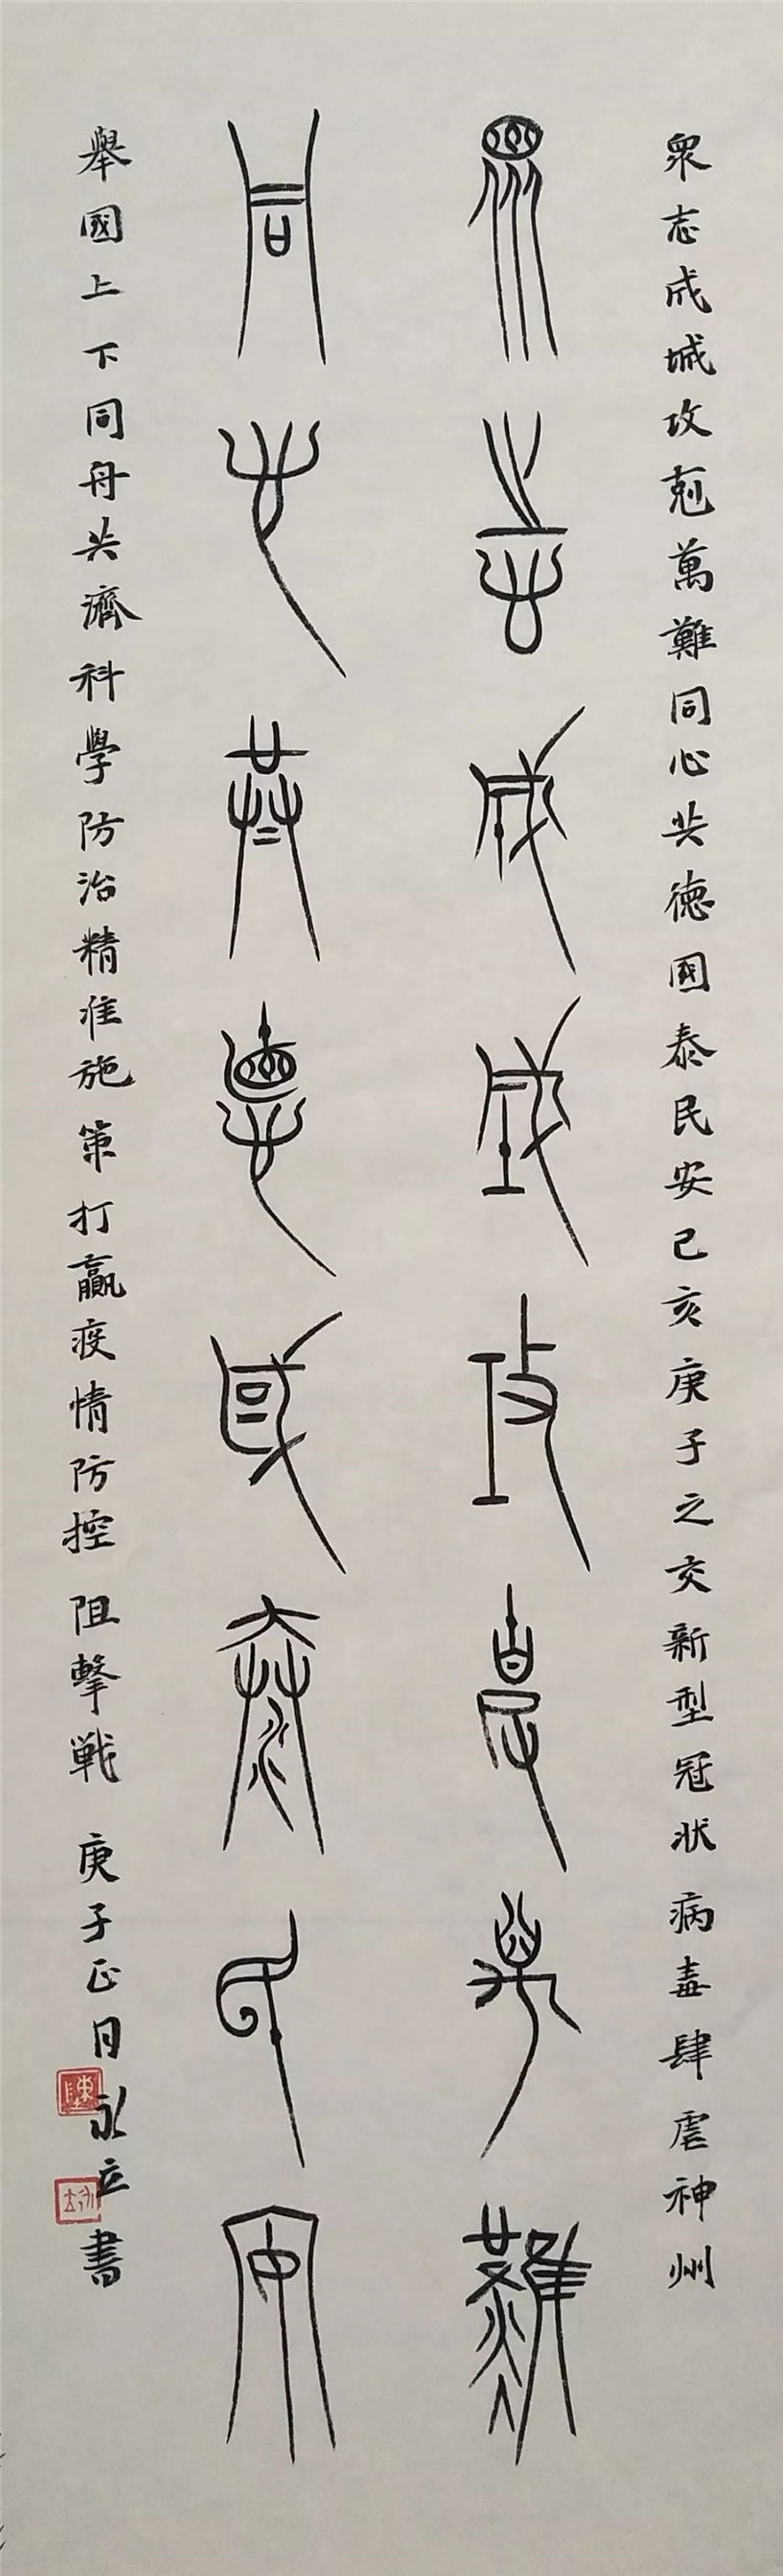 衆志成城攻剋萬難同心共徳國泰民安己亥庚子之交新型冠狀病毒肆虐神州
衆志成城攻克萬難
同心共德國泰民安
舉國上下同舟共濟科學防治精准施策打贏疫情防控阻擊戦 庚子正月永立書
陳
永立